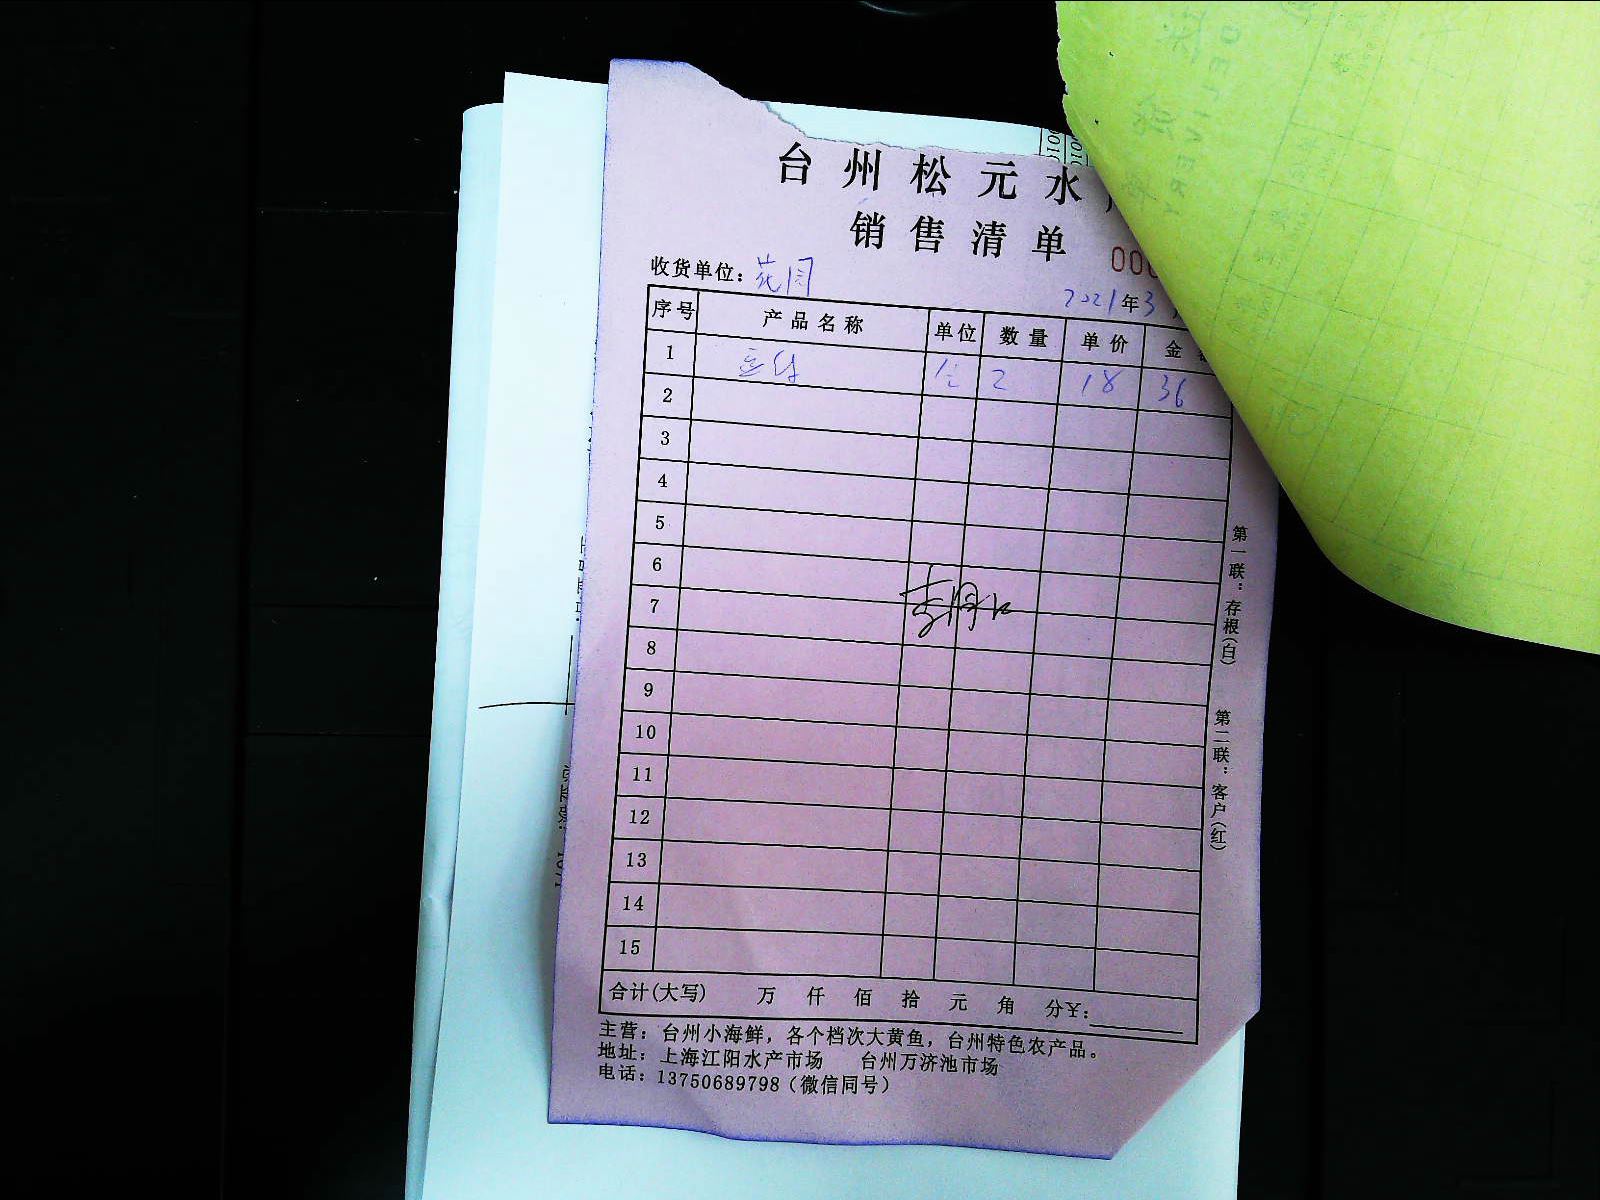 台州松元水
销售清单
000
收货单位：花园
2021年3
序号 产品名称 单位 数量 单价 金
1 2 18 36
2
3
4
5
6
7
8
9
10
11
12
13
14
15
合计(大写) 万 仟 佰 拾 元 角 分￥：
主营：台州小海鲜，各个档次大黄鱼，台州特色农产品。
地址：上海江阳水产市场 台州万济池市场
电话：13750689798（微信同号）
第一联：存根(白)
第二联：客户(红)